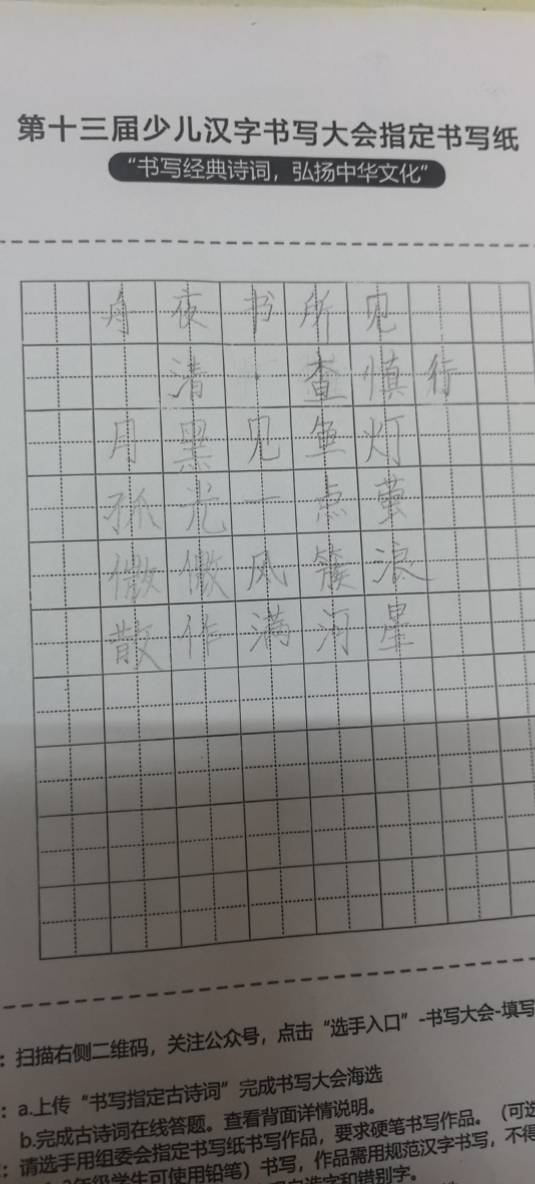 第十三届少儿汉字书写大会指定书写纸
“书写经典诗词，弘扬中华文化”
舟夜书所见
清·查慎行
月黑见鱼灯
孤光一点萤
微微风簇浪
散作满河星
：扫描右侧二维码，关注公众号，点击“选手入口”-书写大会-填写
：a.上传“书写指定古诗词”完成书写大会海选
b.完成古诗词在线答题。查看背面详情说明。
：请选手用组委会指定书写纸书写作品，要求硬笔书写作品。（可选
2年级学生可使用铅笔）书写，作品需用规范汉字书写，不得
造字和错别字。